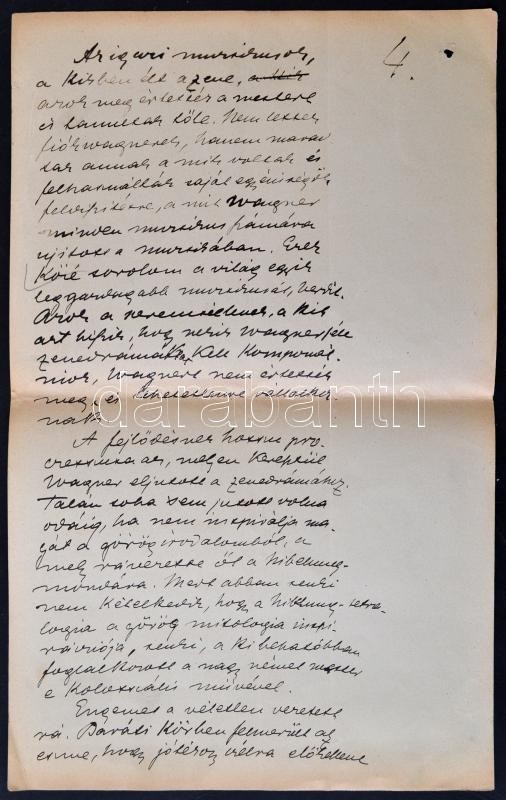 Az igazi muzsikusok,
a kikben élt a zene,
azok megértették a mestert
és tanultak tőle. Nem lettek
fiók wagnerek, hanem marad
tak annak a mik voltak és
felhasználták saját egyéniségük
felfrissítésére, a mit Wagner
minden muzsikus számára
ujitott a muzsikában. Ezek
közé sorolom a világ egyik
leggazdagabb muzsikusát, Verdit.
Azok a szerencsétlenek, a kik
azt hiszik, hogy nekik Wagner féle
zenedrámákat kell komponál-
niok, Wagnert nem értették
meg és lehetetlenre vállalkoz-
nak.
A fejlődésnek hosszu pro-
cesszusa az, melyen keresztül
Wagner eljutott a zenedrámához.
Talán soha sem jutott volna
odáig, ha nem inspirálja ma-
gát a görög irodalomból, a
mely rávezette őt a Nibelung-
mondára. Mert abban senki
nem kételkedik, hogy a Nibelung-tetra-
logia a görög mitologia inspi
rációja, senki, a ki behatóbban
foglalkozott a nagy német mester
e kolosszális művével.
Engemet a véletlen vezetett
rá. Baráti körben felmerült az
eszme, hogy jótékony célra előadjuk
4.
darabanth